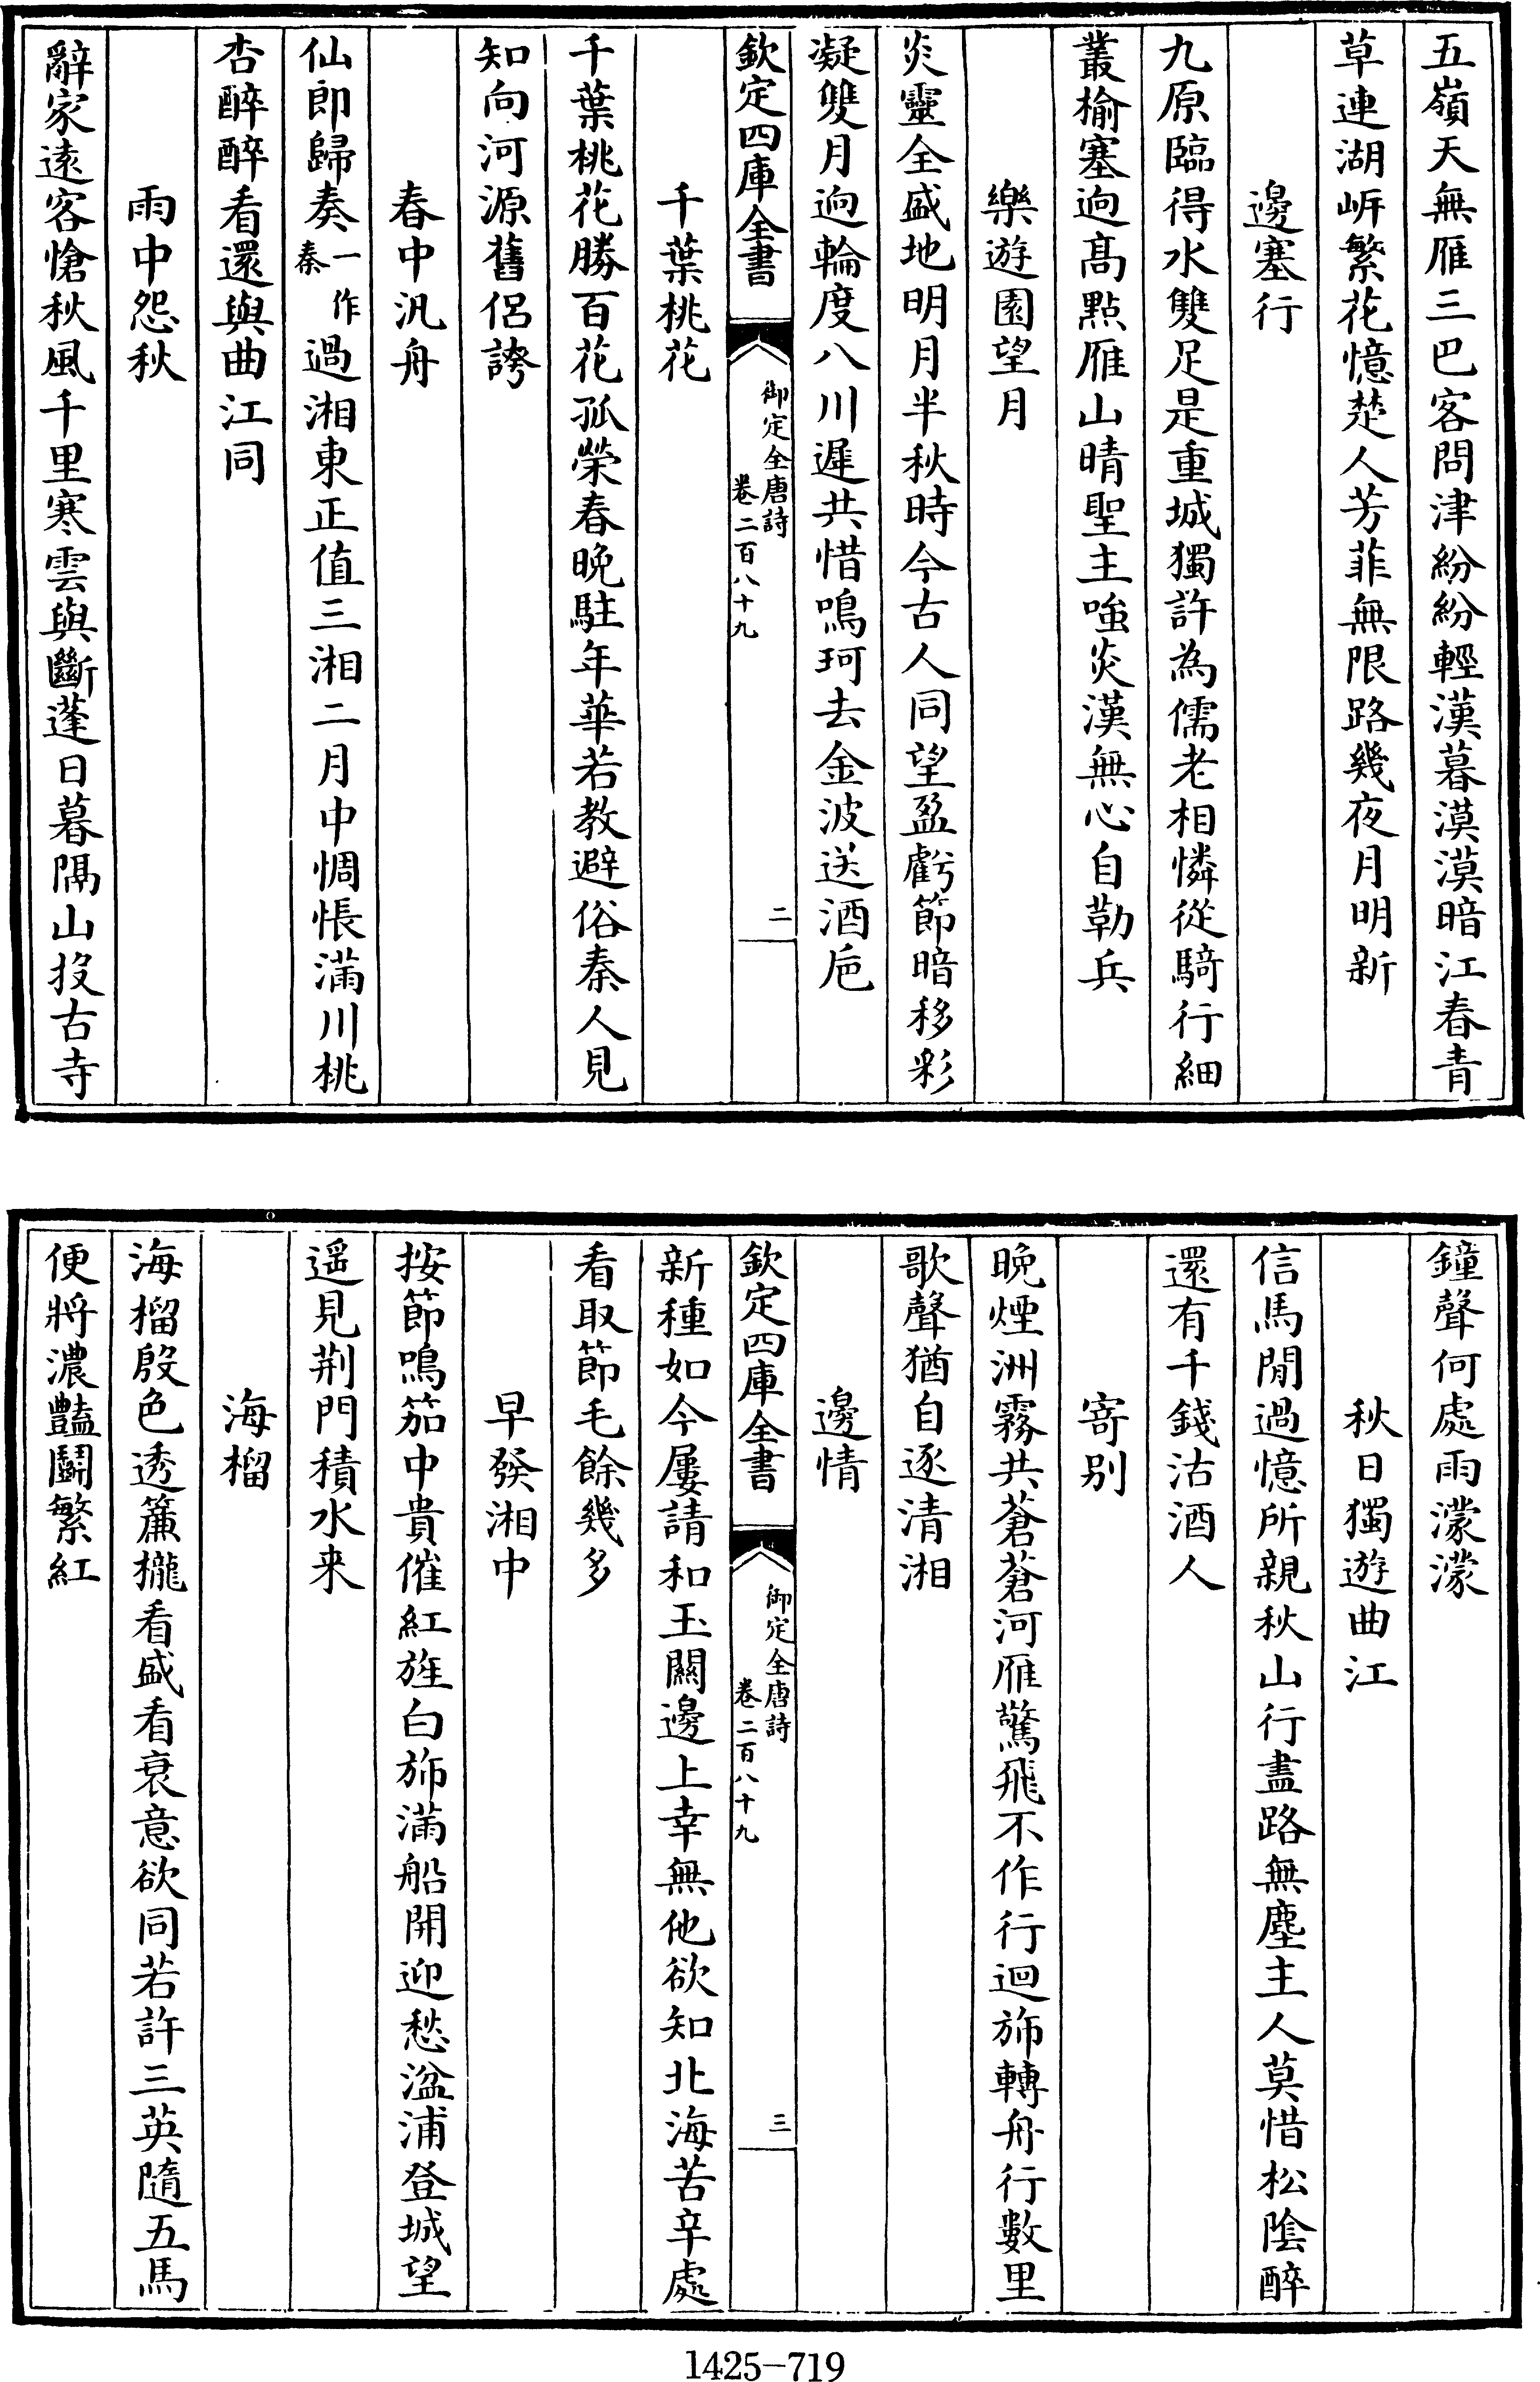 五嶺天無雁三巴客問津紛紛輕漢暮漠漠暗江春青
草連湖㟁繁花憶楚人芳菲無限路幾夜月明新
邊塞行
九原臨得水雙足是重城獨許為儒老相憐從騎行細
叢榆塞逈髙點雁山晴聖主嗤炎漢無心自勒兵
樂遊園望月
炎靈全盛地明月半秋時今古人同望盈虧節暗移彩
凝雙月逈輪度八川遲共惜鳴珂去金波送酒巵
欽定四庫全書
御定全唐詩
卷二百八十九
二
千葉桃花
千葉桃花勝百花孤榮春晚駐年華若教避俗秦人見
知向河源舊侶誇
春中汎舟
仙郎歸奏一作秦過湘東正值三湘二月中惆悵滿川桃
杏醉醉看還與曲江同
雨中怨秋
辭家逺客愴秋風千里寒雲與斷蓬日暮隔山投古寺
鐘聲何處雨濛濛
秋日獨遊曲江
信馬閒過憶所親秋山行盡路無塵主人莫惜松陰醉
還有千錢沽酒人
寄别
晚煙洲霧共蒼蒼河雁驚飛不作行迴斾轉舟行數里
歌聲猶自逐清湘
邊情
欽定四庫全書
御定全唐詩
卷二百八十九
三
新種如今屢請和玉闗邊上幸無他欲知北海苦辛處
看取節毛餘幾多
早發湘中
按節鳴笳中貴催紅旌白斾滿船開迎愁湓浦登城望
遥見荆門積水来
海榴
海榴殷色透簾櫳看盛看衰意欲同若許三英隨五馬
便將濃豔鬬繁紅
1425-719